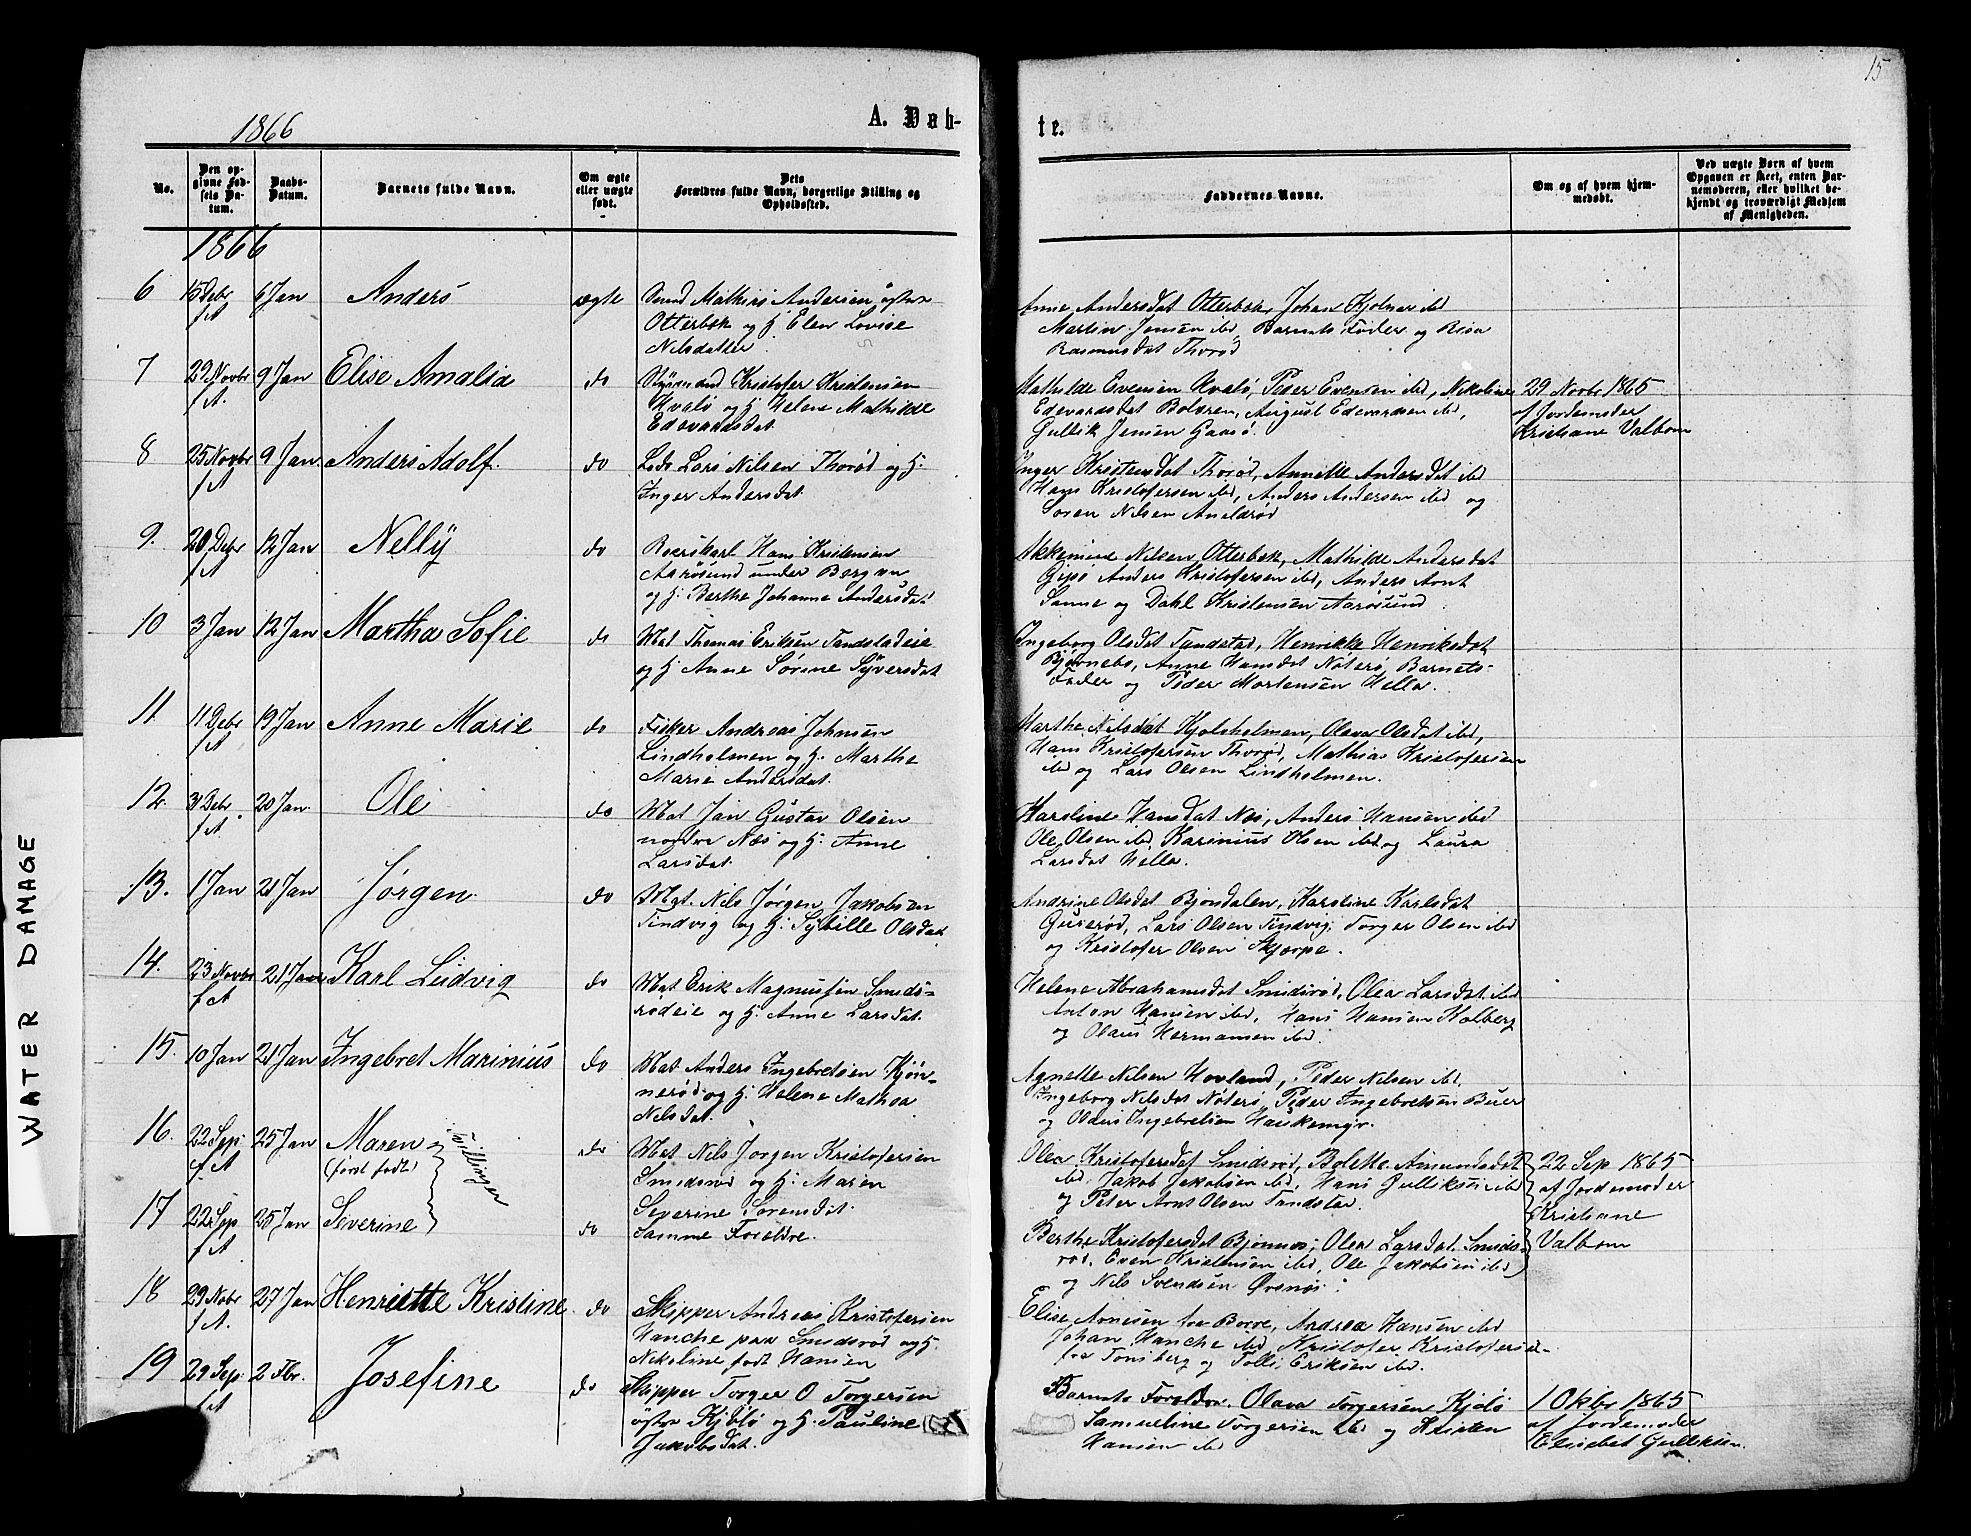 15
1866
A. Dab-
te.
No.
Den op-
givne Fød-
sels Da-
tum.
Daabs-
Datum.
Barnets fulde Navn.
Om ægte
eller uægte
født.
Dets
Forældres fulde Navn, borgerlige Stilling og
Opholdssted.
Faddernes Navne.
Om og af hvem hjem-
medøbt.
Ved uægte Børn af hvem
Opgaven er skeet, enten Bar-
nemoderen, eller hvilket be-
kjendt og troværdigt Medlem
af Menigheden.
1866
6 15 Debr 6 Jan Anders ægte Mathias Andersen østre
f A Otterbek og H. Elen Lovise
Nilsdatter
Anne Andersdat Otterbek, Johan Kjølner ibd
Martin Jensen ibd, Barnets Fader og
Rasmusdat Thorød
7 29 Novbr 9 Jan Elise Amalia do Kristofer Kristensen
f A. Hvalø og H. Helene Mathilde
Edevardsdat
Mathilde Evensen Hvalø, Peder Evensen ibd, Nikoline
Edevardsdat Bolæren, August Edevardsen ibd,
Gullik Jensen Gaasø.
29 Novbr 1865
af Jordemoder
Kristiane Valbom
8 25 Novbr 9 Jan. Anders Adolf. do Lods Lars Nilsen Thorød og H.
f A Inger Andersdat.
Inger Kristensdat Thorød, Annette Andersdat ibd
Hans Kristofersen ibd, Anders Andersen ibd og
Søren Nilsen
9. 20 Debr 12 Jan Nelly do Hans Kristensen
f A Aarøsund under Bergan
og H. Berthe Johanne Andersdat
Nilsen Otterbek, Mathilde Andersdat
Gipø Anders Kristofersen ibd, Anders Arnt
Sanne og Dahl Kristensen Aarøsund
10 3 Jan 12 Jan Martha Sofie do Mat Thomas Eriksen Tandstadeie
og H. Anne Sørine Syversdat
Ingeborg Olsdat Tandstad, Henrikke Henriksdat
Bjørnebo, Anne Hansdat Nøterø, Barnets-
Fader og Peder Mortensen Hella.
11. 11 Debr 19 Jan Anne Marie do Fisker Andreas Johnsen
f A Lindholmen og H. Marthe
Marie Andersdat.
Marthe Nilsdat Kjøleholmen, Olava Olsdat ibd,
Hans Kristofersen Thorød, Mathias Kristofersen
ibd og Lars Olsen Lindholmen.
12. 31 Debr 20 Jan. Ole do Mat Jan Gustav Olsen
f A. nordre Næs og H. Anne
Larsdat.
Karoline Hansdat Næs, Anders Hansen ibd
Ole Olsen ibd, Karinius Olsen ibd og Laura
Larsdat Hella.
13. 1 Jan 21 Jan Jørgen do Mat. Nils Jørgen Jakobsen
Tindvig og H. Sybille Olsdat
Andrine Olsdat Bjøndalen, Karoline Karlsdat
Guserød, Lars Olsen Tindvig, Torger Olsen ibd
og Kristofer Olsen Skjerpe.
14. 23 Novbr 21 Jan Karl Ludvig do Mat Erik Magnussen Smids-
f A rødeie og H. Anne Larsdat.
Helene Abrahamsdat Smidsrød, Olea Larsdat ibd
Anton Hansen ibd, Hans Hansen Holberg
og Olaus Hermansen ibd.
15. 10 Jan 21 Jan Ingebret Marinius do Mat Anders Ingebretsen Kjøn-
nerød og H. Helene Mathea
Nilsdat.
Agnette Nilsen Hovland, Peder Nilsen ibd,
Ingeborg Nilsdat Nøterø, Peder Ingebretsen Buer
og Olaus Ingebretsen
16. 22 Sep 25 Jan Maren do Mat Nils Jørgen Kristofersen
f A (først født) Smidsrød og H. Maren
Tvillinger
Severine Sørensdat.
Olea Kristofersdat Smidsrød, Bolette Amundsdat
ibd, Jakob Jakobsen ibd, Hans Gulliksen ibd
og Peter Arnt Olsen Tandstad.
22 Sep 1865
af Jordemoder
Kristiane
Valbom
17 22 Sep 25 Jan Severine do Samme Forældre.
f A
Berthe Kristofersdat Bjønnes, Olea Larsdat Smids-
rød, Even Kristensen ibd, Ole Jakobsen ibd
og Nils Svendsen
18 29 Nobr 27 Jan Henriette Kristine. do Skipper Andreas Kristofersen
f A. Hanche paa Smidsrød og H.
Nikoline født Hansen
Elise fra Borre, Andrea Hansen ibd
Johan Hanche ibd, Kristofer Kristofersen
fra Tønsberg og Eriksen ibd.
19 29 Sep. 2 Fbr. Josefine do Skipper Torger O Torgersen
f A østre Kjøløe og H. Pauline
Jakobsdat.
Barnets Forældre. Olava Torgersen Kjølø
Samueline Torgersen ibd og Kristen
Hansen ibd
1 Okbr 1865
af Jordemoder
Elisabet Gulliksen.
WATER DAMAGE